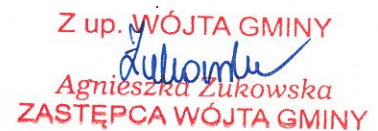 Z up. WÓJTA GMINY
Żukowska
Agnieszka Żukowska
ZASTĘPCA WÓJTA GMINY